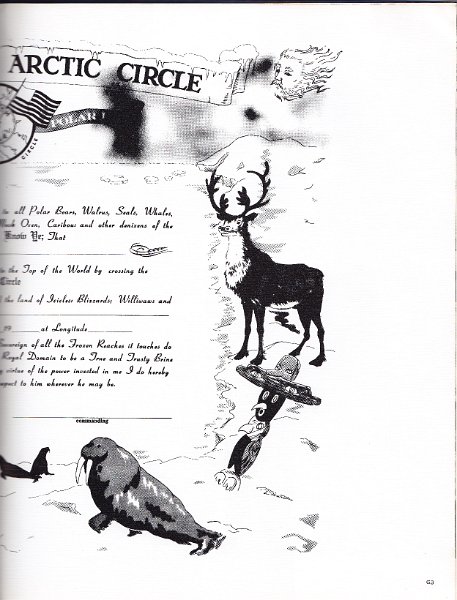 ARCTIC CIRCLE
POLAR
CIRCLE
to all Polar Bears, Walrus, Seals, Whales,
Musk Oxen, Caribous and other denizens of the
Know Ye; That
to the Top of the World by crossing the
Circle
the land of Icicles; Blizzards; Williwaws and
19 at Longitude
Sovereign of all the Frozen Reaches it touches do
Royal Domain to be a True and Trusty Being
virtue of the power invested in me I do hereby
spect to him wherever he may be.
commanding
G3